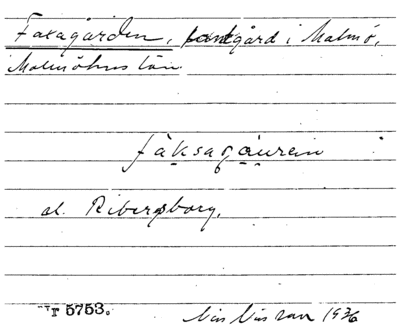 Faxagården, lantgård i Malmö,
Malmöhus län
fáksagáurein
al. Ribersborg.
r 5753.
Nils Nilsson 1936